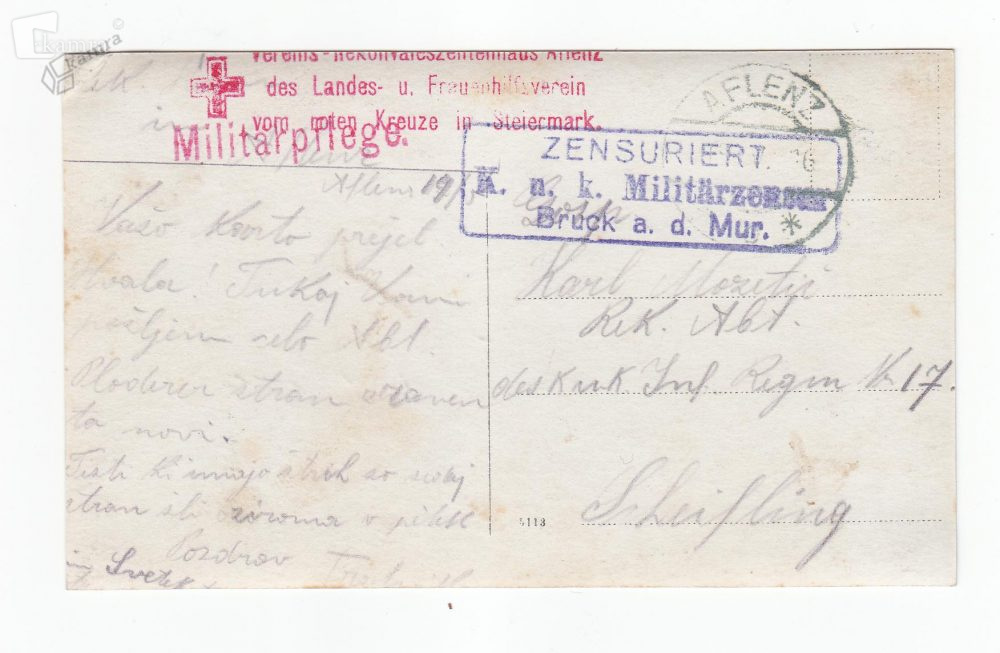 kamra
Vereins-Rekonvaleszentenhaus Aflenz
des Landes- u. Frauenhilfsverein
vom roten Kreuze in Steiermark.
Militärpflege.
AFLENZ
ZENSURIERT.
K. u. k. Militärzensur
Bruck a. d. Mur.
Aflenz 19/
Vašo Karto prejel
Hvala! Tukaj Vam
pošljem sebo Abt.
Ploderer stran
ta novi.
Tisti ki imajo so
stran ali v
Pozdrav
Svetek
Gosp.
Karl Mozetič
Rek. Abt.
des kuk Inf. Regm Nr 17.
Scheifling
5113